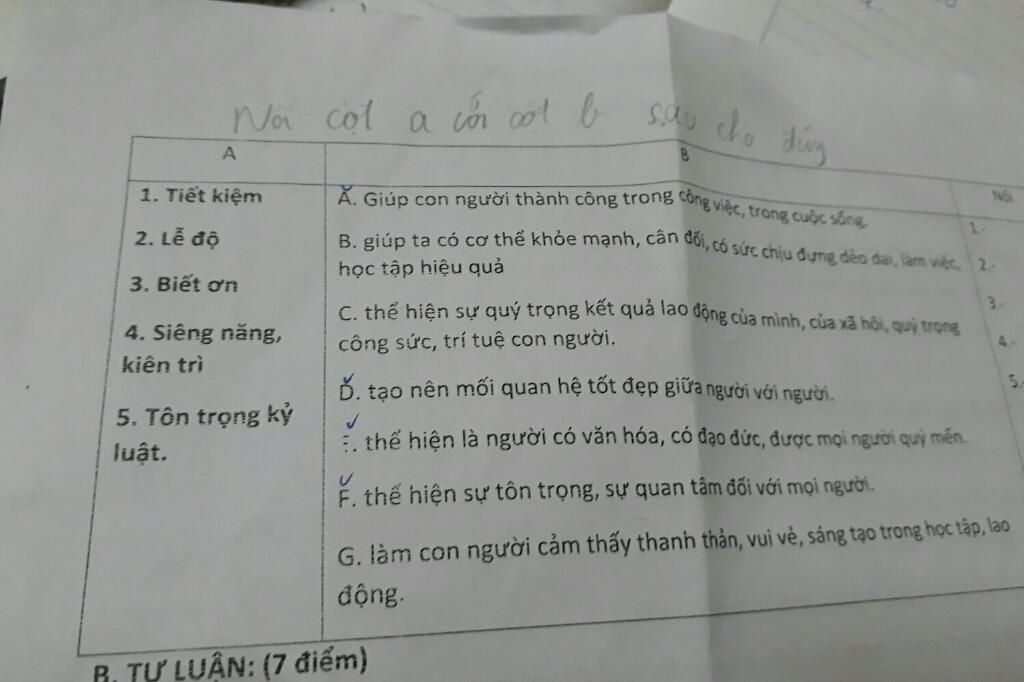 Nối cột a với cột b sao cho đúng
A
B
Nối
1. Tiết kiệm
2. Lễ độ
3. Biết ơn
4. Siêng năng,
kiên trì
5. Tôn trọng kỷ
luật.
A. Giúp con người thành công trong công việc, trong cuộc sống.
B. giúp ta có cơ thể khỏe mạnh, cân đối, có sức chịu đựng dẻo dai, làm việc,
học tập hiệu quả
C. thể hiện sự quý trọng kết quả lao động của mình, của xã hội, quý trọng
công sức, trí tuệ con người.
D. tạo nên mối quan hệ tốt đẹp giữa người với người.
E. thể hiện là người có văn hóa, có đạo đức, được mọi người quý mến.
F. thể hiện sự tôn trọng, sự quan tâm đối với mọi người.
G. làm con người cảm thấy thanh thản, vui vẻ, sáng tạo trong học tập, lao
động.
1.-
2.-
3.-
4.-
5.-
B. TỰ LUẬN: (7 điểm)